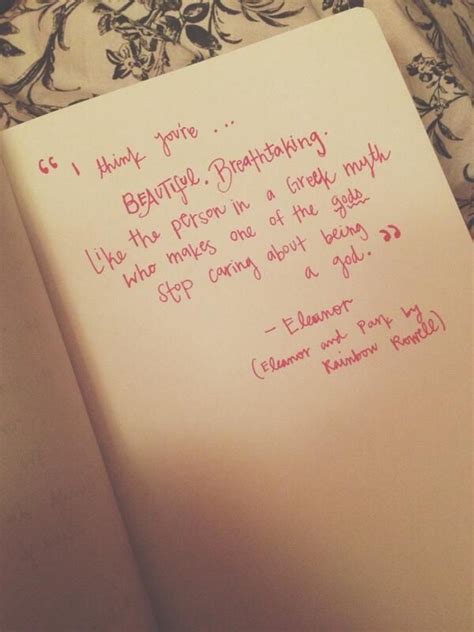 “I think you're ...
BEAUTIFUL. Breathtaking.
Like the person in a Greek myth
who makes one of the gods
stop caring about being
a god.”
- Eleanor
(Eleanor and Park by
Rainbow Rowell)